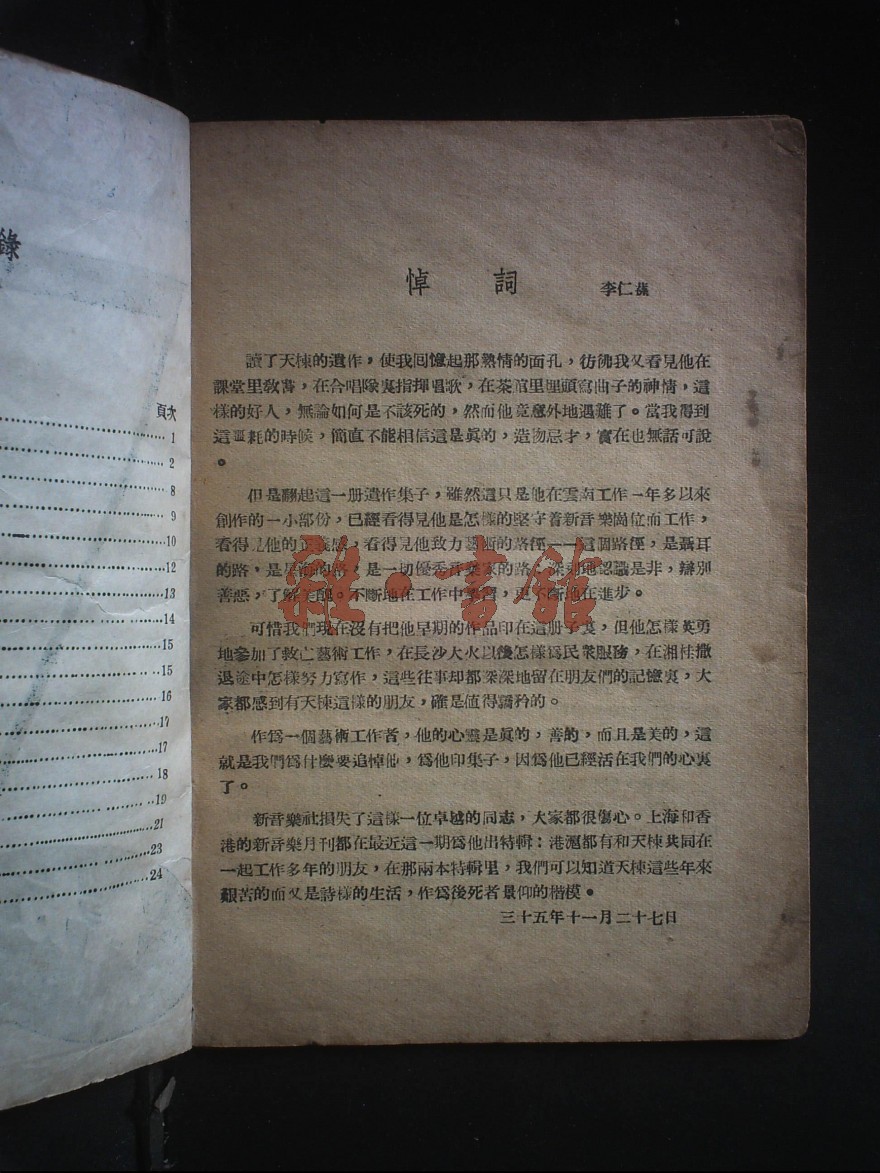 錄
頁次
1
2
8
9
10
12
13
14
15
15
16
17
17
18
19
21
23
24
悼 詞 李仁蓀
讀了天棟的遺作，使我囘憶起那熱情的面孔，彷彿我又看見他在
課堂里敎書，在合唱隊裏指揮唱歌，在茶館里埋頭寫曲子的神情，這
樣的好人，無論如何是不該死的，然而他竟意外地遇難了。當我得到
這噩耗的時候，簡直不能相信這是眞的，造物忌才，實在也無話可說
。
但是翻起這一册遺作集子，雖然這只是他在雲南工作一年多以來
創作的一小部份，已經看得見他是怎樣的堅守着新音樂崗位而工作，
看得見他的正義感，看得見他致力藝術的路徑——這個路徑，是聶耳
的路，是星海的路，是一切優秀音樂家的路，深刻地認識是非，辯別
善惡，了解美醜。不斷地在工作中學習，更不斷地在進步。
可惜我們現在沒有把他早期的作品印在這册子裏，但他怎樣英勇
地參加了救亡藝術工作，在長沙大火以後怎樣爲民衆服務，在湘桂撤
退途中怎樣努力寫作，這些往事却都深深地留在朋友們的記憶裏，大
家都感到有天棟這樣的朋友，確是值得驕矜的。
作爲一個藝術工作者，他的心靈是眞的，善的，而且是美的，這
就是我們爲什麼要追悼他，爲他印集子，因爲他已經活在我們的心裏
了。
新音樂社損失了這樣一位卓越的同志，大家都很傷心。上海和香
港的新音樂月刊都在最近這一期爲他出特輯：港滬都有和天棟共同在
一起工作多年的朋友，在那兩本特輯里，我們可以知道天棟這些年來
艱苦的而又是詩樣的生活，作爲後死者景仰的楷模。
三十五年十一月二十七日
雜·書館